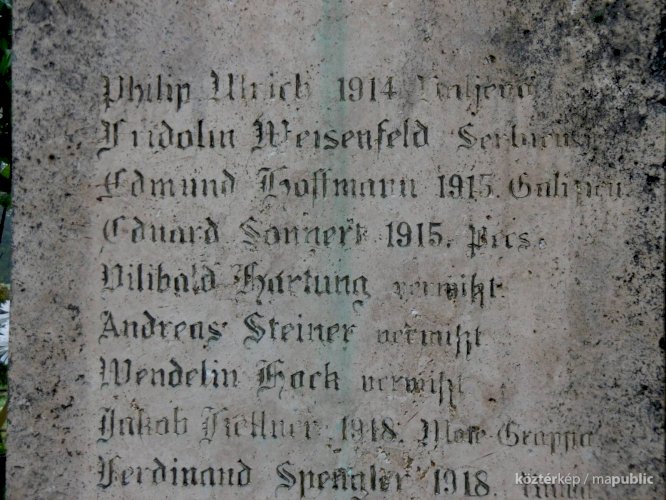 Philip Ulrich 1914 Valjevo
Fridolin Weisenfeld Serbien
Edmund Hoffmann 1915. Galizien
Eduard Sonnert 1915. Pecs.
Vilibald Hartung vermiszt
Andreas Steiner vermiszt
Wendelin Hock vermiszt
Jakob Kellner 1918. Mote Grappa
Ferdinand Spengler 1918.
köztérkép / mapublic